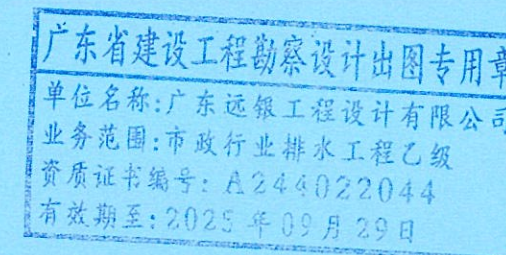 广东省建设工程勘察设计出图专用章
单位名称:广东远银工程设计有限公司
业务范围:市政行业排水工程乙级
资质证书编号:A244022044
有效期至:2025年09月29日